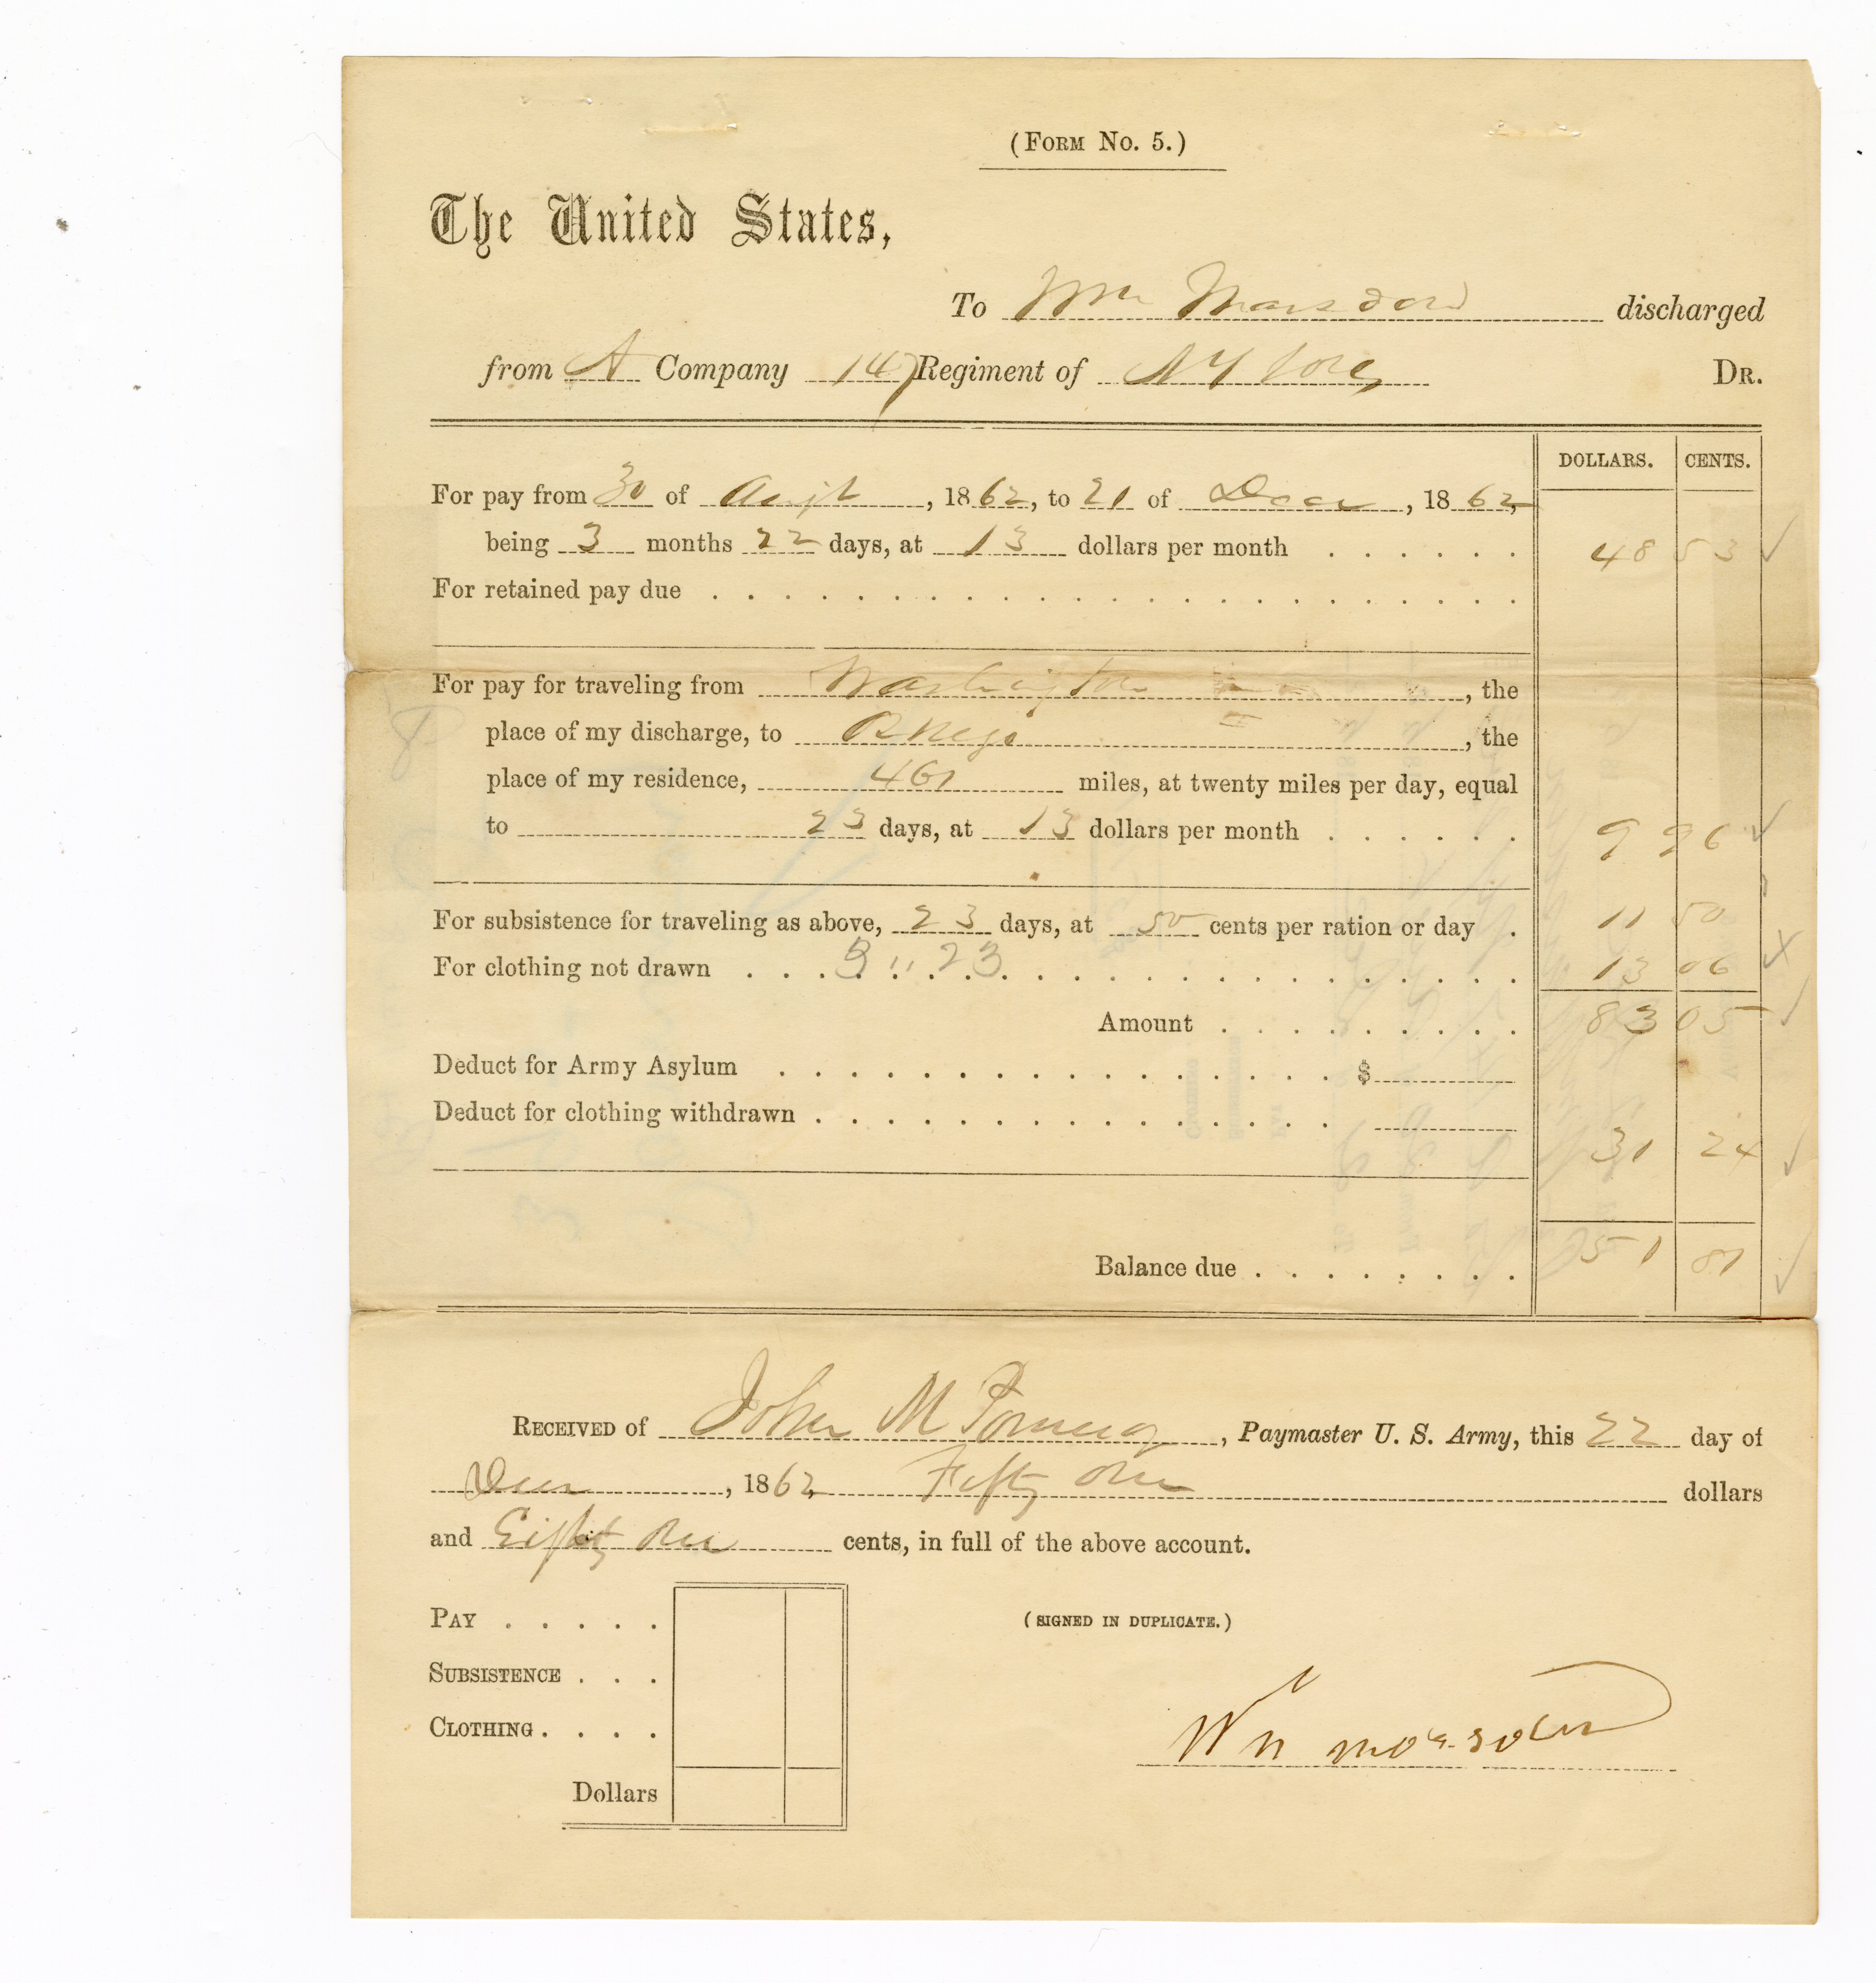 (Form No. 5.)
The United States,
To Wm Marsden discharged
from A Company 147 Regiment of NY Vols Dr.
DOLLARS. CENTS.
For pay from 30 of Augt, 1862, to 21 of Decr, 1862,
being 3 months 22 days, at 13 dollars per month . . . . . . 48 53 ✓
For retained pay due
For pay for traveling from Washington, the
place of my discharge, to Oswego, the
place of my residence, 461 miles, at twenty miles per day, equal
to 23 days, at 13 dollars per month . . . . . . 9 96 ✓
For subsistence for traveling as above, 23 days, at 50 cents per ration or day . 11 50
For clothing not drawn 3 " 23 13 06 x
Amount 83 05 ✓
Deduct for Army Asylum $
Deduct for clothing withdrawn
31 24 ✓
Balance due 51 81 ✓
Received of John M Pomeroy, Paymaster U. S. Army, this 22 day of
Decr, 1862, Fifty One dollars
and Eighty One cents, in full of the above account.
Pay
(SIGNED IN DUPLICATE.)
Subsistence
Clothing
Wm marsden
Dollars